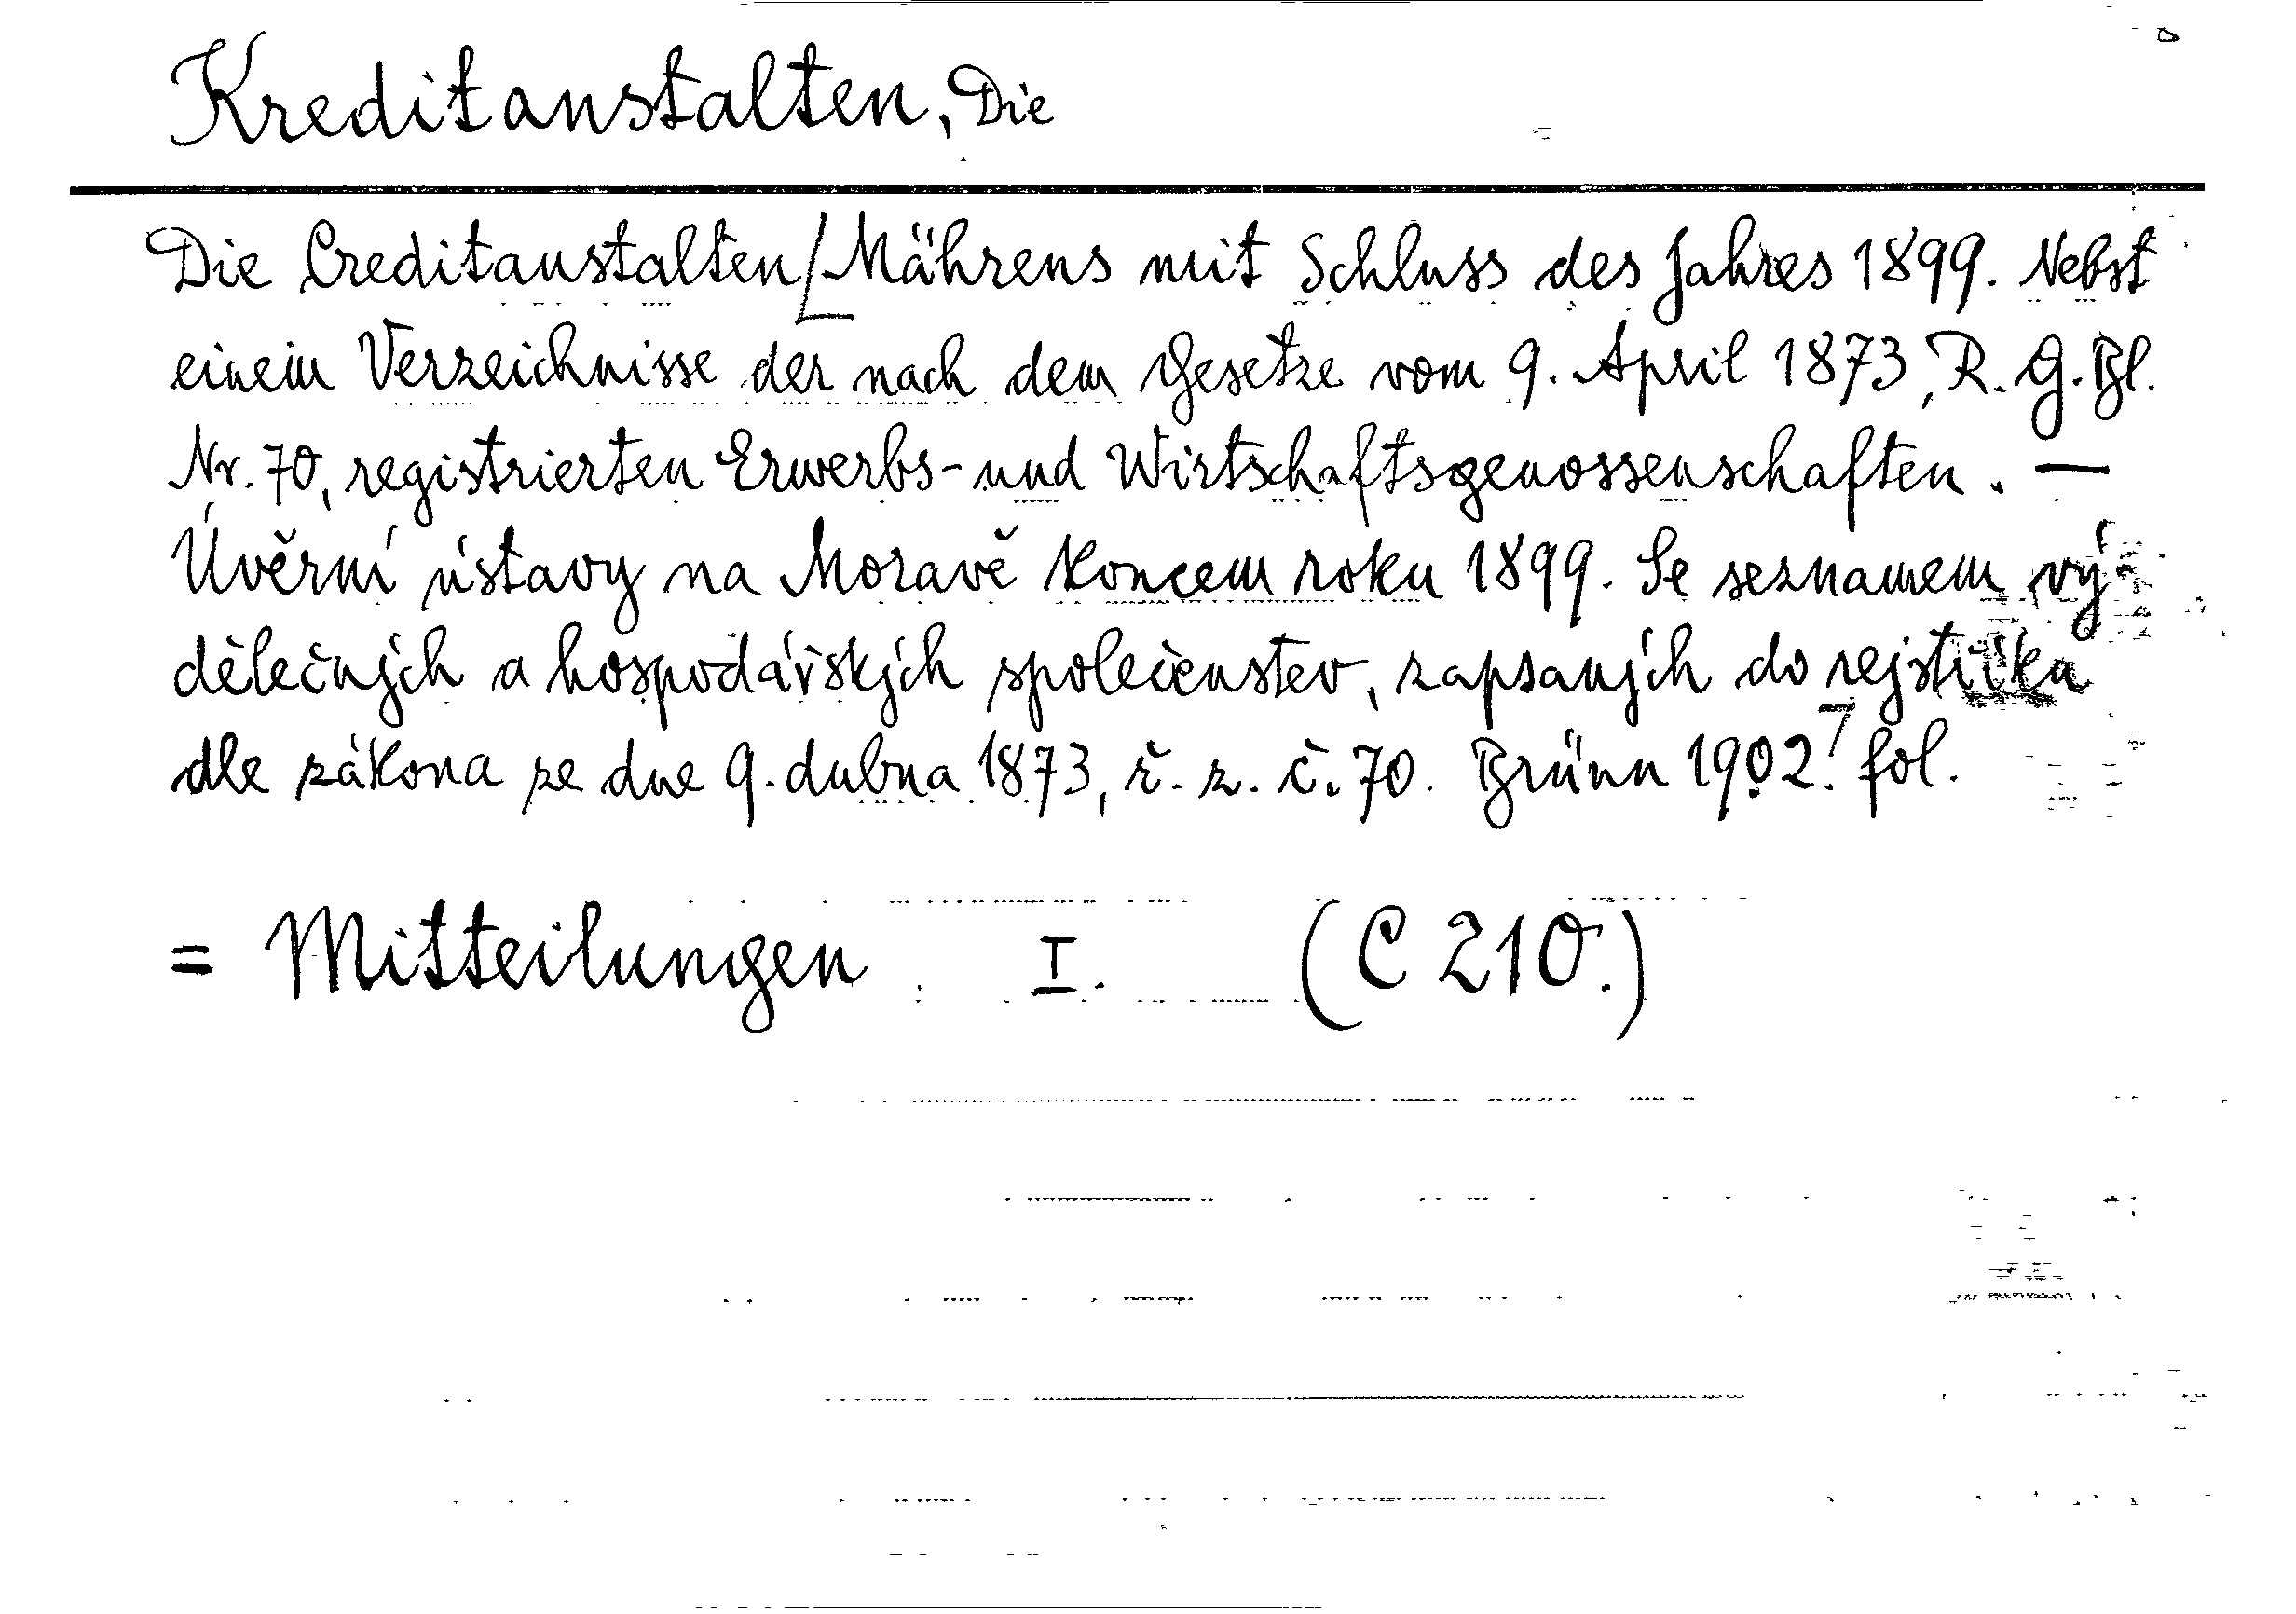 Kreditanstalten, Die
Die Creditanstalten [Mährens mit Schluss des Jahres 1899. Nebst
einem Verzeichnisse der nach dem Gesetze vom 9. April 1873, R. G. Bl.
Nr. 70, registrierten Erwerbs- und Wirtschaftsgenossenschaften. —
Úvěrní ústavy na Moravě koncem roku 1899. Se seznamem vý-
dělečných a hospodářských společenstev, zapsaných do rejstříka
dle zákona ze dne 9. dubna 1873, ř. z. č. 70. Brünn 1902.] fol.
= Mitteilungen I. (C 210.)